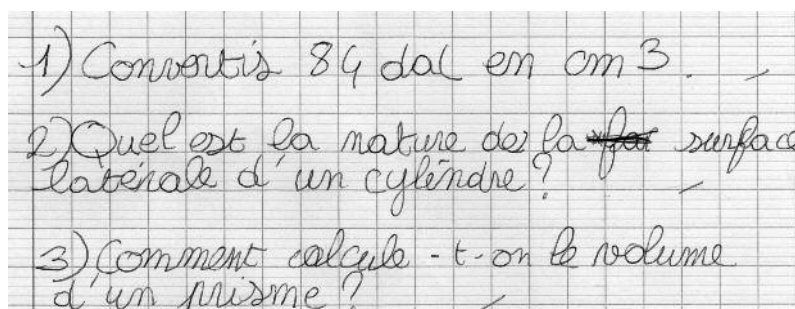 1) Convertis 84 dal en cm3.
2) Quel est la nature de la surface
latérale d'un cylindre?
3) Comment calcule-t-on le volume
d'un prisme?